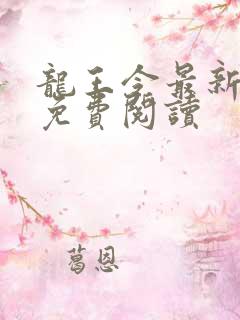 龍王令最新
免費閱讀
葛恩